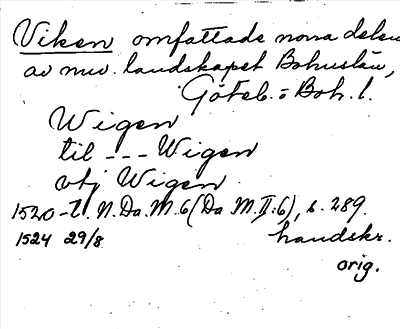 Viken omfattade norra delen
av nuv. landskapet Bohuslän,
Göteb. o Boh. l.
Wigen
til --- Wigen
vtj Wigen
1520-t. N.Da.M. 6 (Da M.II:6), s. 289.
1524 29/8 handskr.
orig.